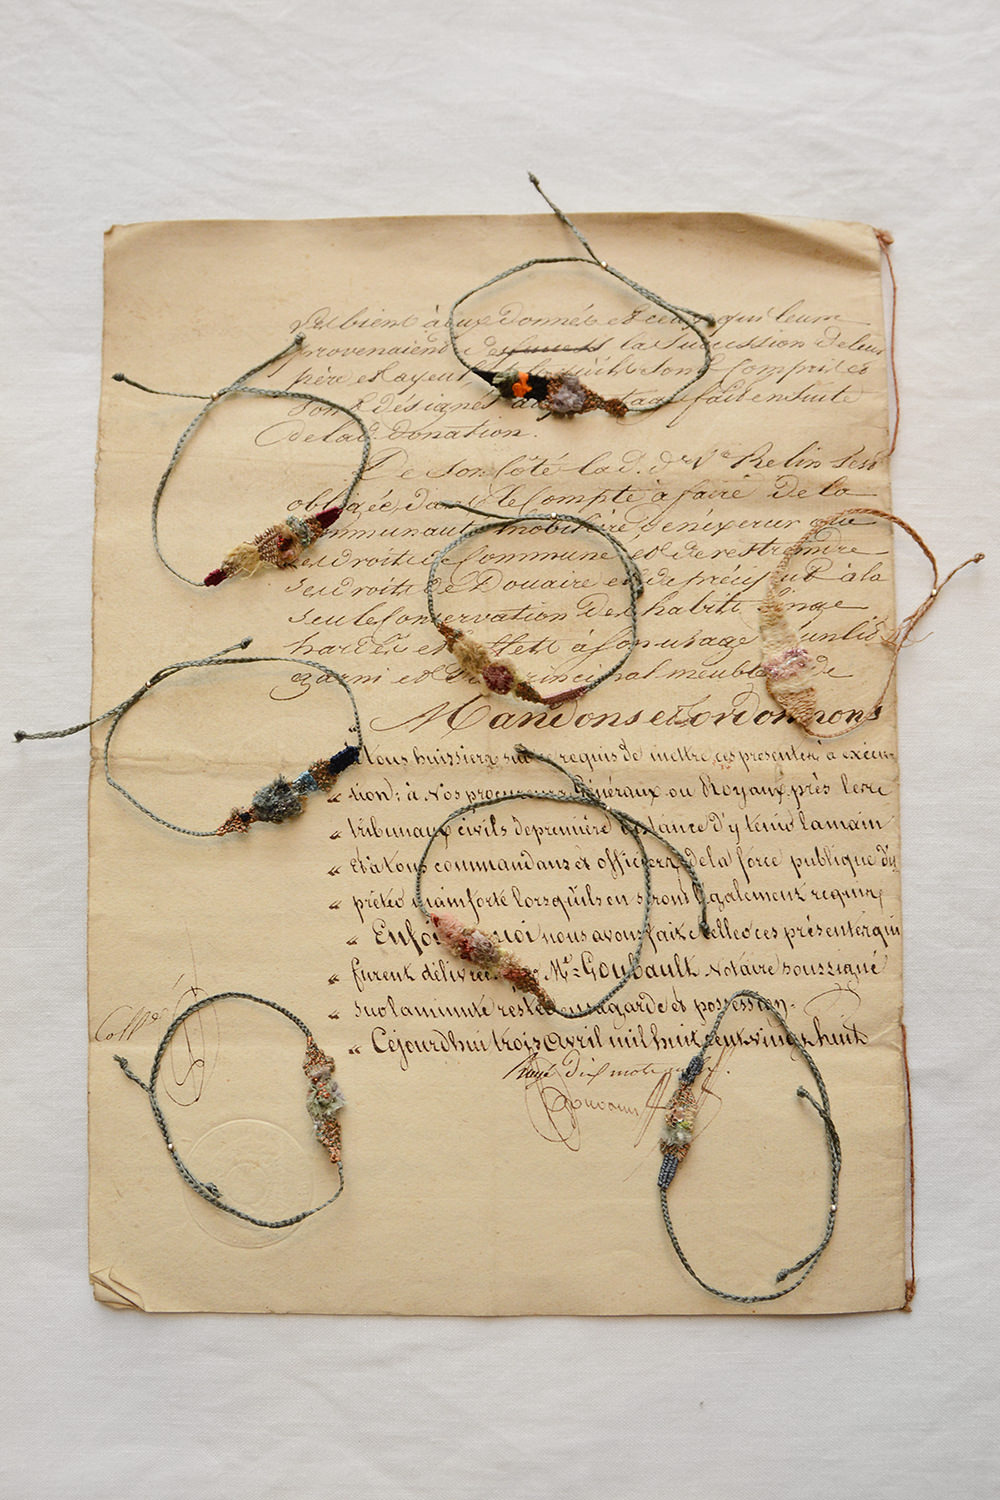 bient à eux Donnés et ceux qui leur
provenaient de la Succession de leur
père et ayeul, Sont Compris et
Sont désignés fait ensuite
de lad. Donation.
De Son Côté lad. d.e V.e Relin Sest
obligée, dans le Compte à faire De la
Communauté Mobilière, De n'éxercer que
ses droits de Commune et de restreindre
ses droits de Douaire et de Préciput à la
seule Conservation Des habits, linge
hardes et à son usage, un lit
garni et Du principal meuble de
Mandons et ordonnons
à tous huissiers sur ce requis de mettre ces présentes à exécu-
" tion; à Nos procureurs Généraux ou Royaux près les
" tribunaux civils de première instance d'y tenir la main
" Et à tous commandans et officiers de la force publique d'y
" prêter mainforte lorsqu'ils en seront légalement requis,
" En foi de quoi nous avons fait sceller ces présentes qui
" furent délivrées par M.e Goubault Notaire soussigné
" sur la minute restée en sa garde et possession.
" Cejourdhui trois Avril mil huit cent vingt huit
Rayé dix mots
Coll.é